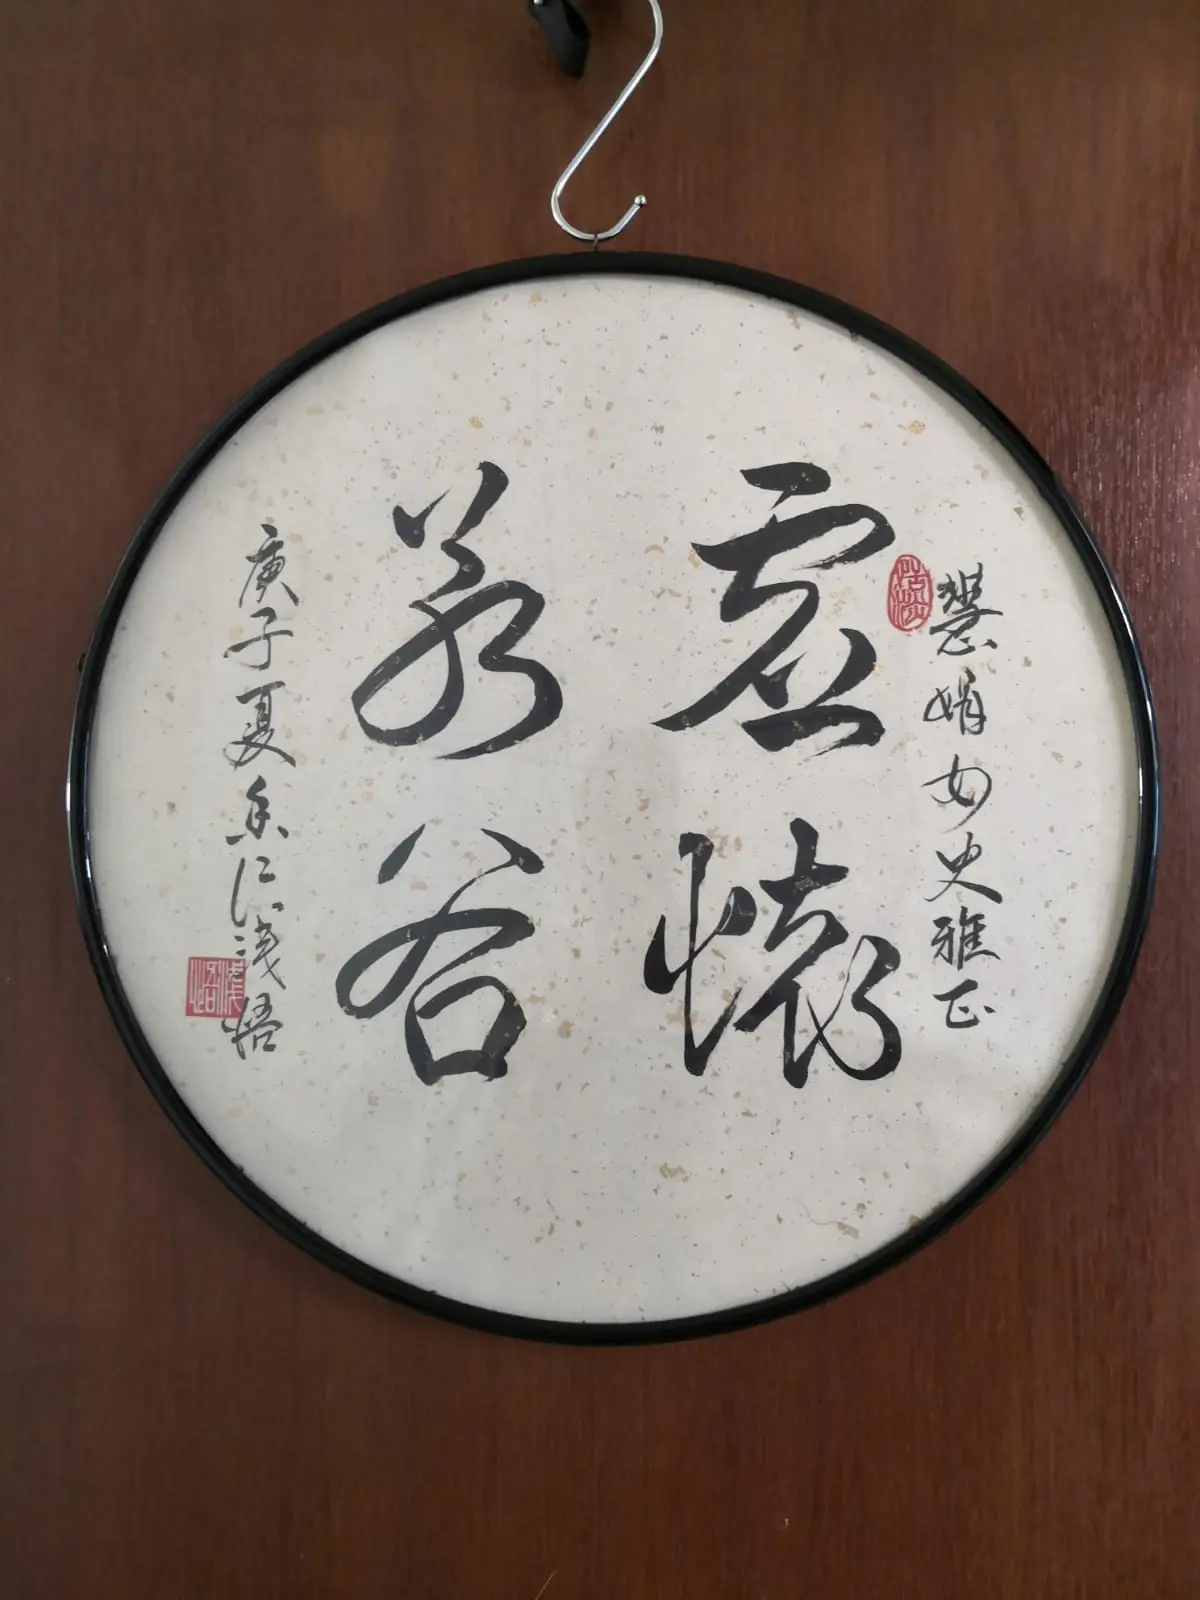 慧娟女史雅正
虚懷
若谷
庚子夏余仁浅悟